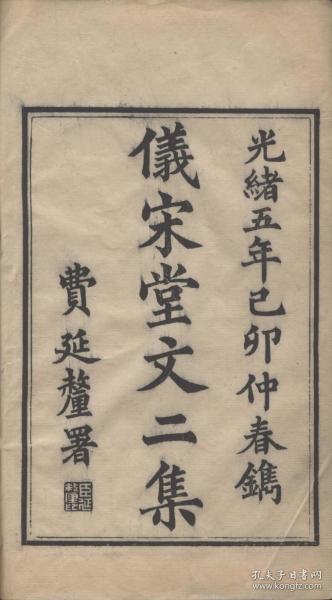 光緒五年己卯仲春鐫
儀宋堂文二集
費延釐署
孔夫子旧书网